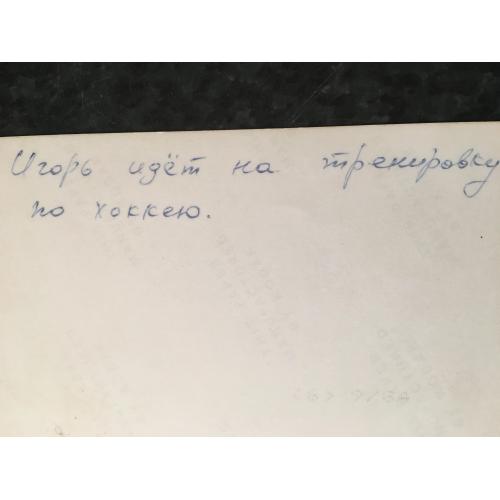 Игорь идёт на тренировку
по хоккею.